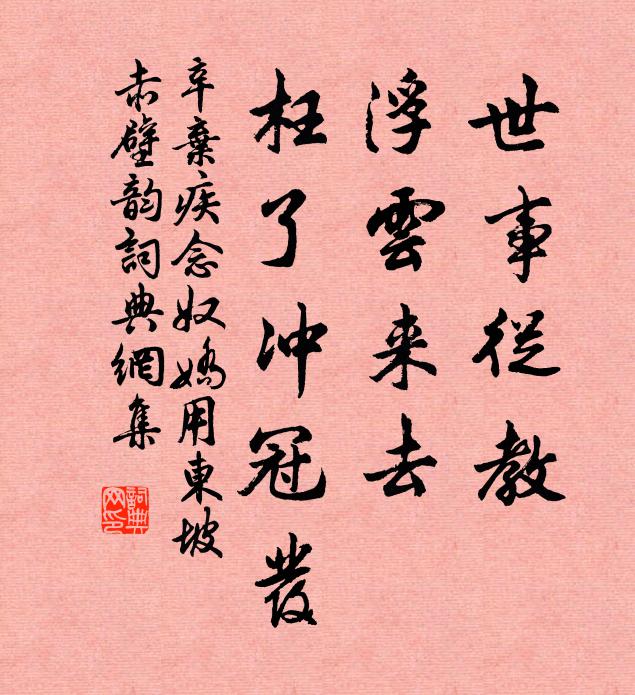 世事從教
浮雲来去
枉了冲冠發
辛棄疾念奴嬌用東坡
赤壁韵詞典網集
詞典
网印